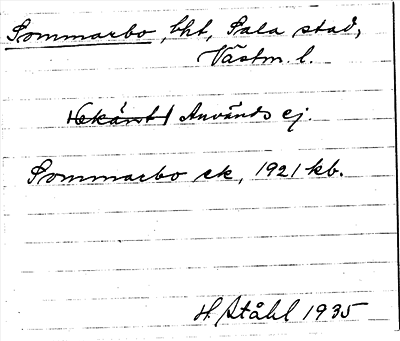 Sommarbo, bht, Sala stad,
Västm. l.
Används ej.
Sommarbo ek, 1921 kb.
H. Ståhl 1935